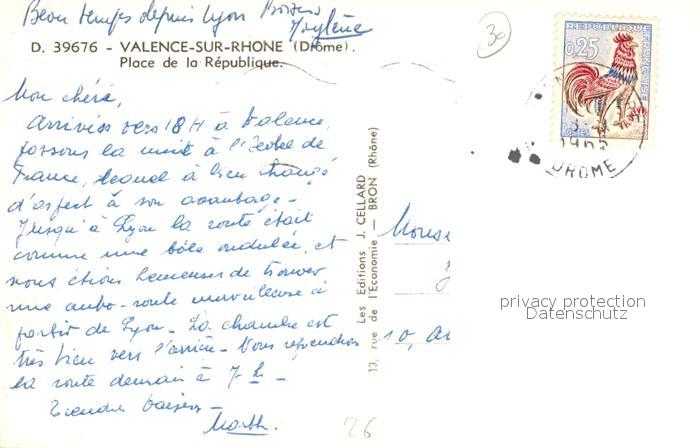 Beau temps depuis Lyon Baisers
D. 39676 - VALENCE-SUR-RHONE (Drôme).
Place de la République.
Mon chéri,
Arrivées vers 18H à Valence,
passons la nuit à l'Hotel de
France, lequel à bien changé
d'aspect à son avantage -
Jusqu'à Lyon la route était
comme une tôle ondulée, et
nous étions heureuses de trouver
une auto-route merveilleuse à
partir de Lyon - La chambre est
très bien vers l'arrière - Nous reprendrons
la route demain à 7 h -
Tendres baisers -
Les Editions J. CELLARD
13, rue de l'Economie — BRON (Rhône)
30
REPUBLIQUE FRANÇAISE
0,25
POSTES
DROME
Monse
10, A
26
privacy protection
Datenschutz